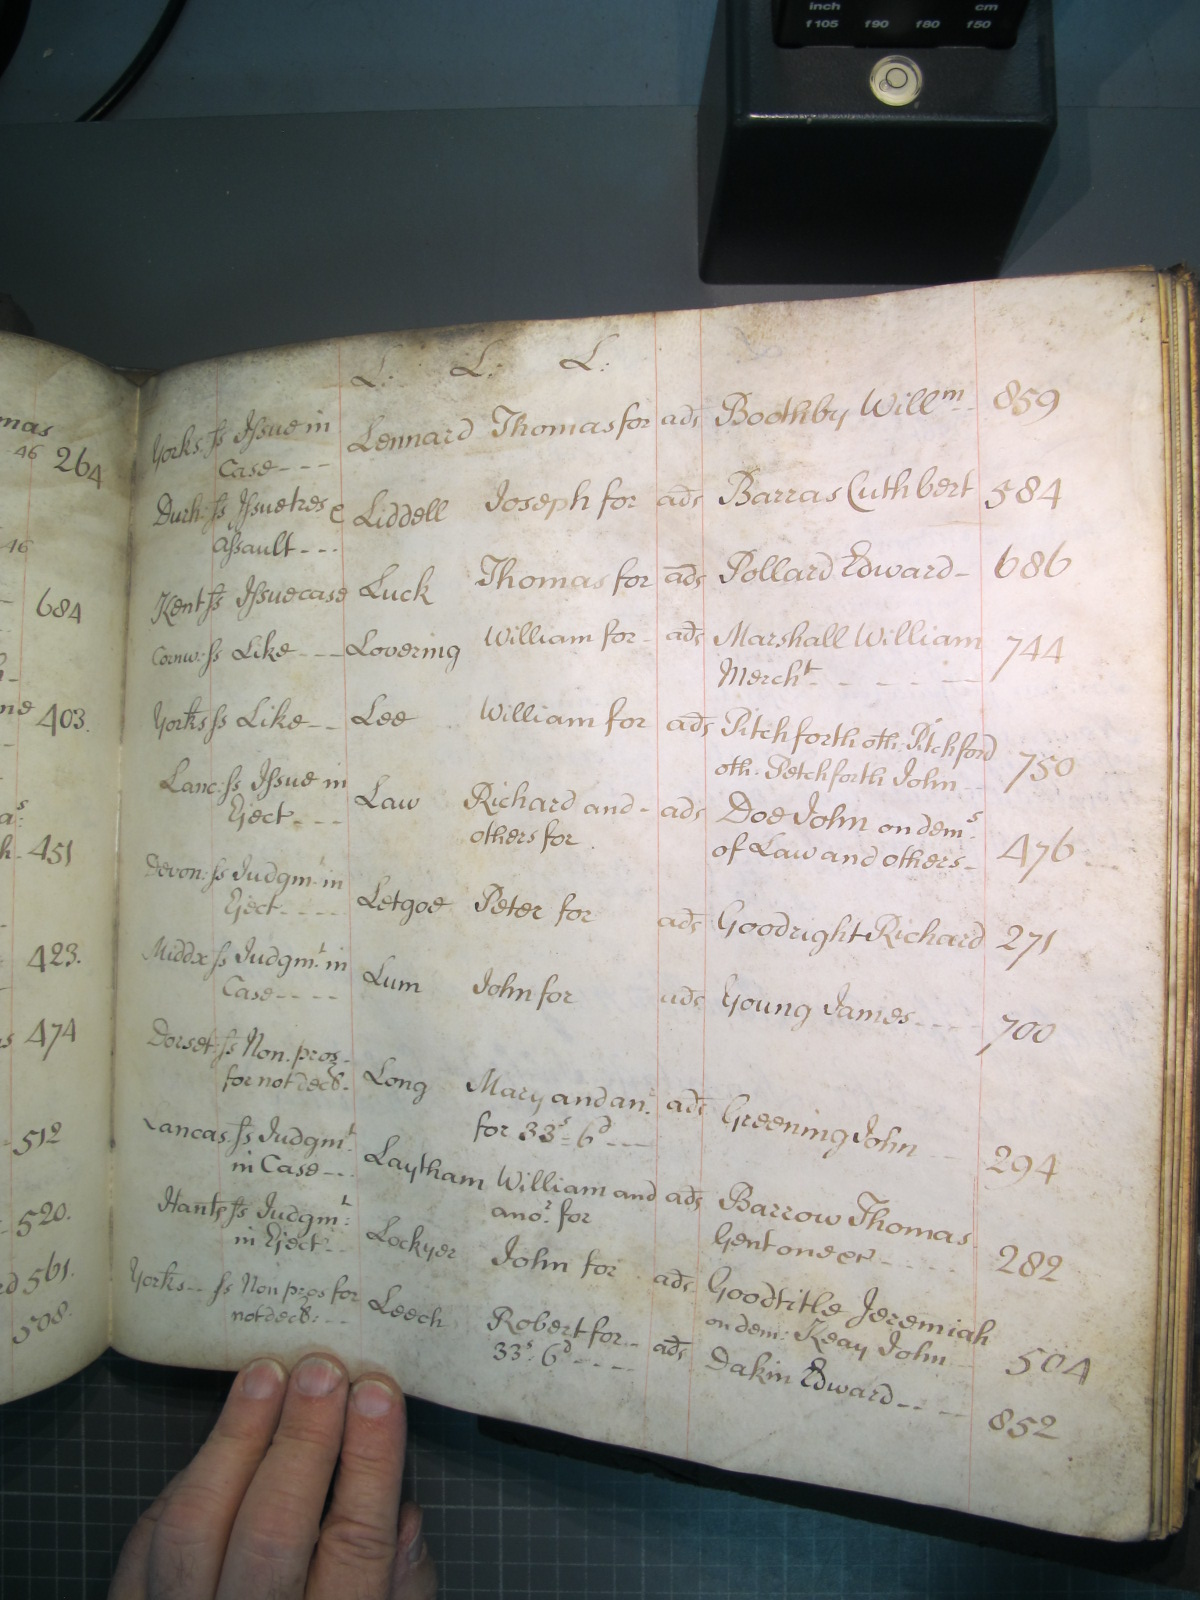 inch cm
f105 f90 f80 f50
mas
46 264
46
684
403.
451
423.
474
512
520.
561.
508
L: L: L:
Yorks ſs Iſsue in Lennard Thomas for ads Boothby Willm 859
Case - - -
Durh: ſs Iſsue tres e Liddell Joseph for ads Barras Cuthbert 584
aſsault - - -
Kent ſs Iſsue case Luck Thomas for ads Pollard Edward - 686
Cornw: ſs Like - - - Lovering William for - ads Marshall William 744
Mercht - - - -
Yorks ſs Like - - Lee William for ads Pitchforth oth: Pitchford 750
oth: Petchforth John - -
Lanc: ſs Iſsue in Law Richard and - ads Doe John on dems: 476
Eject - - - others for of Law and others -
Devon: ſs Judgmt in Letgoe Peter for ads Goodright Richard 271
Eject - - - -
Middx ſs Judgmt: in Lum John for ads Young James - - - - 700
Case - - - -
Dorset: ſs Non. pros - Long Mary and anr: ads Greening John - - 294
for not decl. for 33s = 6d - - -
Lancas: ſs Judgmt: Laytham William and ads Barrow Thomas 282
in Case - - - anor: for Gent one &c - - - -
Hants ſs Judgmt: Lockyer John for ads Goodtitle Jeremiah 504
in Eject - - on dem: Keay John - -
Yorks - - ſs Non pros for Leech Robert for - - ads Dakin Edward - - - - 852
not decl: - - - 33s: 6d - - - -